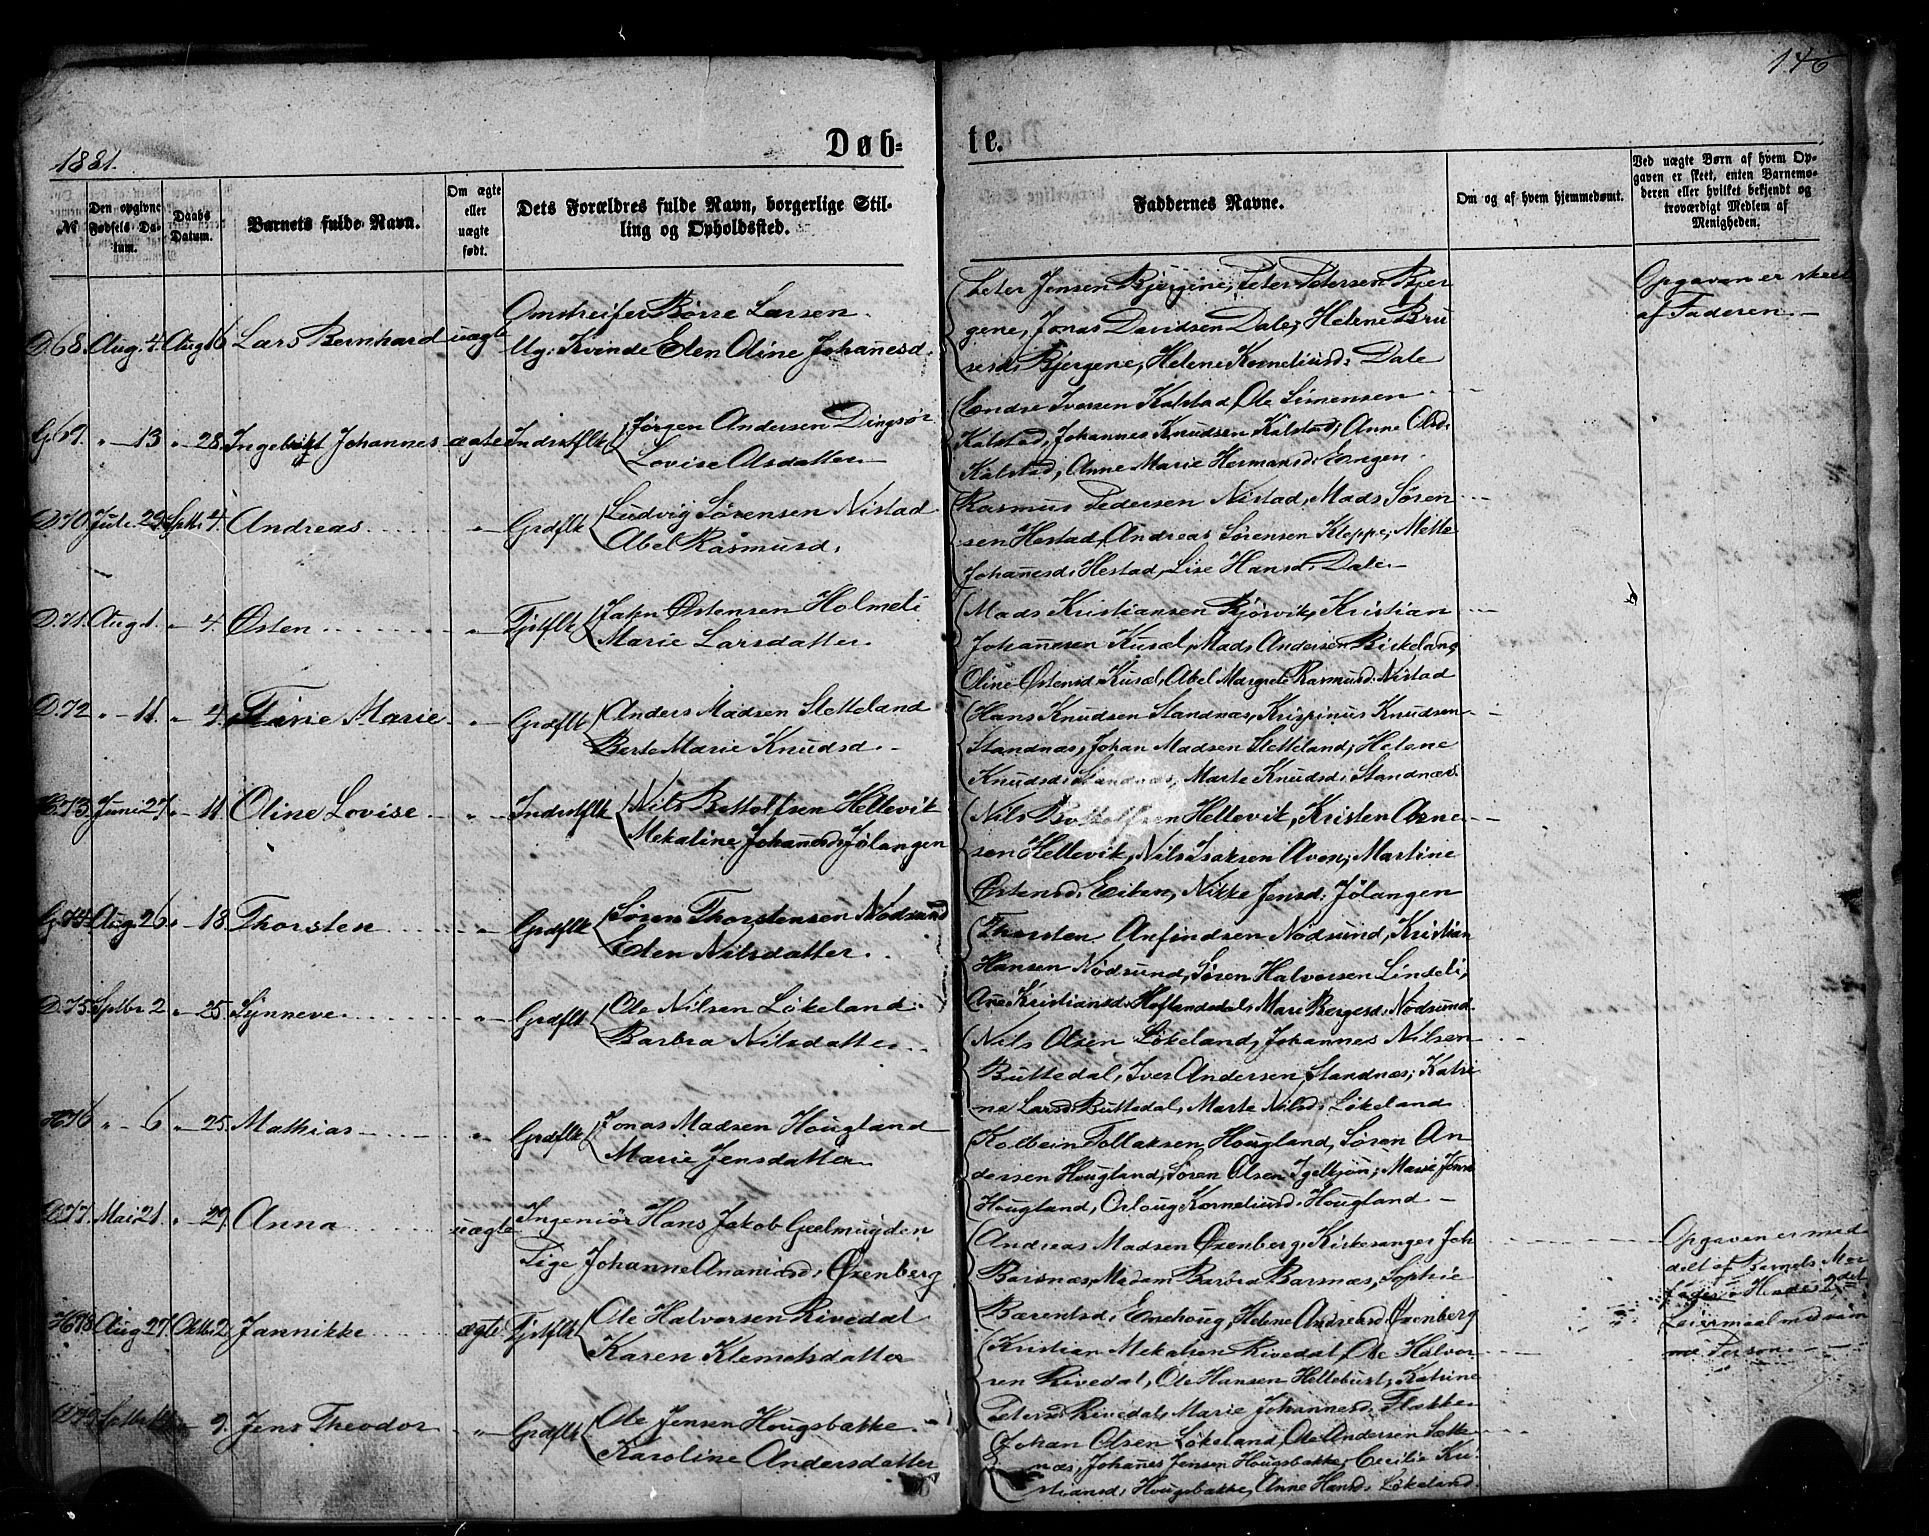 146
1881.
Døb-
te.
№
Den opgivne Fødsels Datum.
Daabs Datum.
Barnets fulde Navn.
Om ægte eller uægte født.
Dets Forældres fulde Navn, borgerlige Stilling og Opholdssted.
Faddernes Navne.
Om og af hvem hjemmedøbt.
Ved uægte Børn af hvem Opgaven er skeet, enten Barnemoderen eller hvilket bekjendt og troværdigt Medlem af Menigheden.
D.68. Aug. 4. Aug 16 Lars Bernhard uægte
Omstreifer Børre Larsen
Ug: Kvinde Elen Oline Johanesd:
Peter Jensen Bjergene, Peter Petersen Bjer
gene, Jonas Davidsen Dale, Helene Bru
sesd: Bjergene, Helene Korneliusd: Dale
Opgaven er skeet
af Faderen.
G69. " - 13 " - 28. Ingebrigt Johannes ægte Indrstflk
Jørgen Andersen Dingsør
Lovise Olsdatter
Endre Iversen Kalstad, Ole Simensen
Kalstad, Johannes Knudsen Kalstad, Anne Olsd:
Kalstad, Anne Marie Hermansd: Engen.
D.70. Juli 29. Septbr 4. Andreas " Grdflk
Ludvig Sørensen Nistad
Abel Rasmusd:
Rasmus Pedersen Nistad, Mads Søren
sen Hestad, Andreas Sørensen Kleppe, Mette
Johanesd: Hestad, Lise Hansd: Dale
D.71. Aug 1. " - 4. Østen " Fjstflk
Jahn Østensen Holmeli
Marie Larsdatter
Mads Kristiansen Bjørvik, Kristian
Johannesen Kusæl, Mads Andersen Birkeland
Oline Østensd: Kusæl, Abel Margrete Rasmusd: Nistad
D.72 " - 11. " - 4. Marie " Grdflk
Anders Madsen Sletteland
Berte Marie Knudsd.
Hans Knudsen Standnæs, Krispinus Knudsen
Standnæs, Johan Madsen Sletteland, Helene
Knudsd: Standnæs, Marte Knudsd: Standnæs
H.73. Juni 27. " - 11. Oline Lovise " Indrstflk
Nils Bottolfsen Hellevik
Mekaline Johanesd: Jølangen
Nils Bottolfsen Hellevik, Kristen Arne
sen Hellevik, Nils Isaksen Aven, Martine
Østensd: Eiken, Nikke Jensd: Jølangen
G.74. Aug. 26. " - 18. Thorsten " Grdflk
Søren Thorstensen Nødsund
Elen Nilsdatter
Thorsten Anfindsen Nødsund, Kristian
Hansen Nødsund, Søren Halvorsen Lindeli,
Ane Kristiansd: Hoflandsdal, Mari Børgesd: Nødsund
D.75. Sptbr 2 " - 25. Synneve " Grdflk
Ole Nilsen Løkeland
Barbra Nilsdatter
Nils Olsen Løkeland, Johannes Nilsen
Buttedal, Iver Andersen Standnæs, Katri
ne Larsd: Buttedal, Marte Nilsd: Løkeland
H.76 " - 6 " - 25. Mathias " Grdflk
Jonas Madsen Hougland
Marie Jensdatter
Kolbein Tollaksen Hougland, Søren An
dersen Hougland, Søren Olsen Igelkjøn, Marie
Hougland, Orloug Korneliusd: Hougland
D.77. Mai 21. " - 29. Anna uægte
Ingeniør Hans Jakob Geelmuyden
Pige Johanne Ananiasd: Øxenberg
Andreas Madsen Øxenberg, Kirkesanger Joh
Barsnæs, Madam Barbra Barsnæs, Sophie
Bærentsd: Emehoug, Helene Andreasd: Øxenberg
Opgaven er med
delt af Barnets Mor
2det
Leiermaal med sam
me Person
H.78 Aug 27. Oktbr 2. Jannikke ægte Fjstflk
Ole Halvorsen Rivedal
Karen Klemetsdatter
Kristian Mekalsen Rivedal, Ole Halvor
sen Rivedal, Ole Hansen Hellebust, Katrine
Petersd: Rivedal, Marie Johannesd: Flekke
9. Jens Theodor " Grdflk
Ole Jensen Hougsbakke
Karoline Andersdatter
Johan Olsen Løkeland, Ole Andersen Sætte
næs, Johanes Jensen Hougsbakke, Cecilie Kri
stiansd: Hougsbakke, Anne Hansd: Løkeland